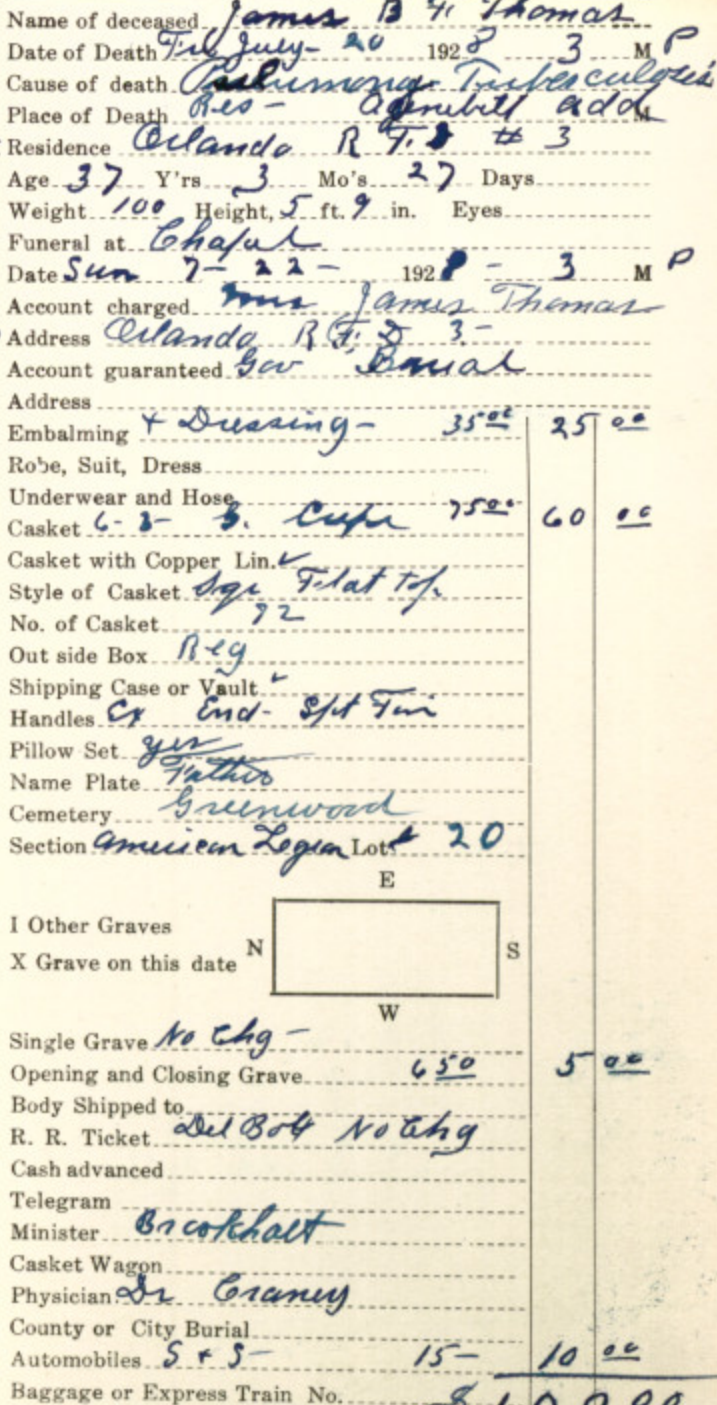 Name of deceased James B F. Thomas
Date of Death Fri July- 20 1928 3 M P
Cause of death Pulumona- Tuberculosis
Place of Death Res- add M
Residence Orlando R F. D # 3
Age 37 Y'rs 3 Mo's 27 Days
Weight 100 Height, 5 ft. 9 in. Eyes
Funeral at Chapel
Date Sun 7-22- 1928 - 3 M P
Account charged Mrs James Thomas
Address Orlando R F. D 3-
Account guaranteed Gov Burial
Address
Embalming + Dressing- 35 00 25 00
Robe, Suit, Dress
Underwear and Hose
Casket 6-3- G. Crepe 75 00 60 00
Casket with Copper Lin. ✓
Style of Casket Sqr Flat top.
No. of Casket 92
Out side Box Reg
Shipping Case or Vault
Handles Ex End- Spt Tin
Pillow Set yes
Name Plate Father
Cemetery Greenwood
Section American Legion Lot # 20
E
I Other Graves
X Grave on this date N S
W
Single Grave No Chg-
Opening and Closing Grave 6 50 5 00
Body Shipped to
R. R. Ticket Del Box No Chg
Cash advanced
Telegram
Minister Brookhalt
Casket Wagon
Physician Dr Craney
County or City Burial
Automobiles S + S- 15- 10 00
Baggage or Express Train No. $